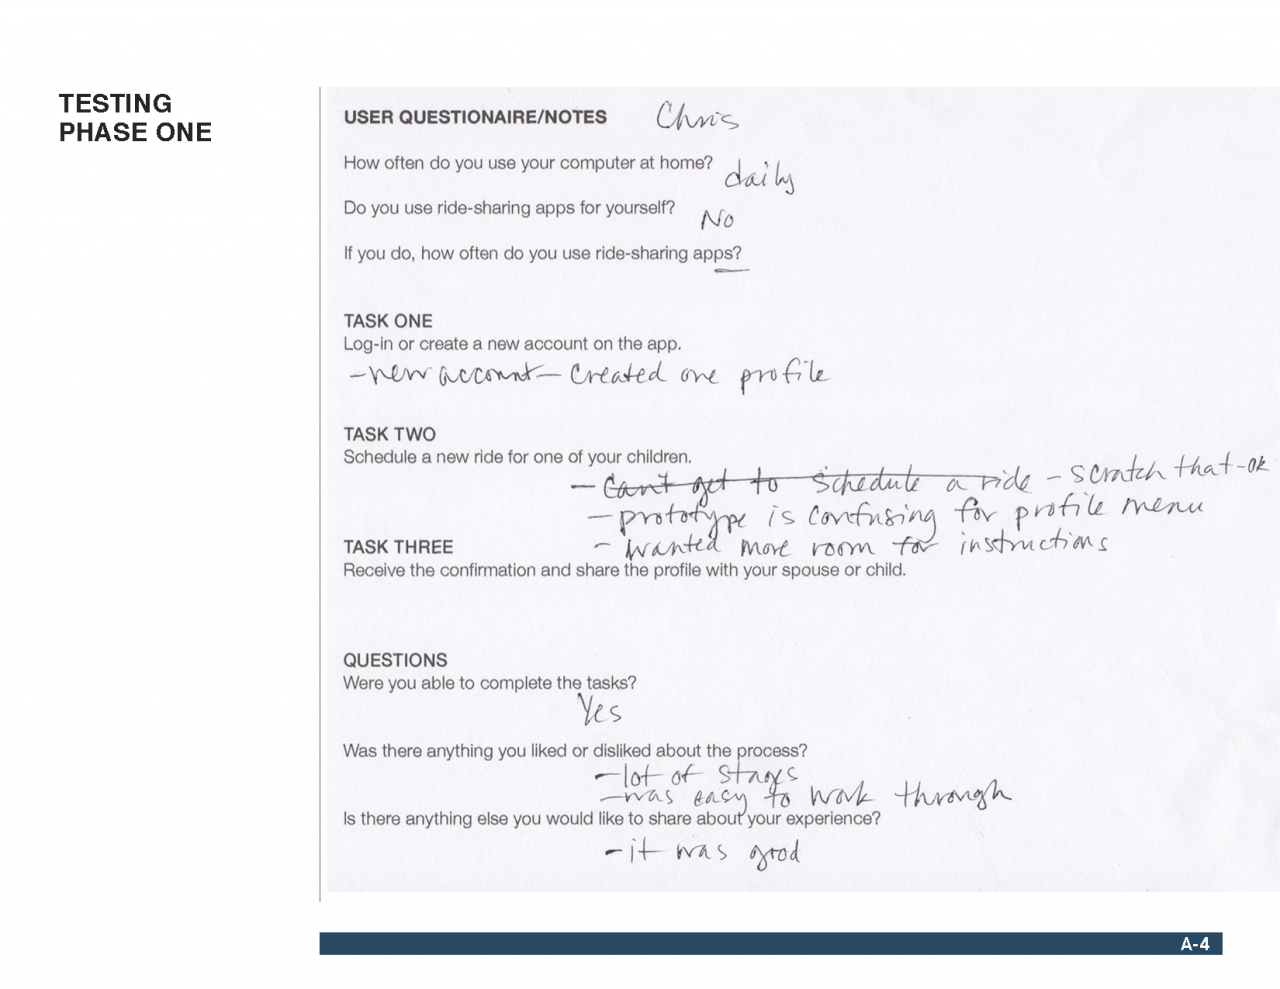 TESTING
PHASE ONE
USER QUESTIONAIRE/NOTES Chris
How often do you use your computer at home? daily
Do you use ride-sharing apps for yourself? No
If you do, how often do you use ride-sharing apps? —
TASK ONE
Log-in or create a new account on the app.
- new account - Created one profile
TASK TWO
Schedule a new ride for one of your children.
- Can't get to schedule a ride - scratch that - ok
- prototype is confusing for profile menu
- wanted more room for instructions
TASK THREE
Receive the confirmation and share the profile with your spouse or child.
QUESTIONS
Were you able to complete the tasks?
Yes
Was there anything you liked or disliked about the process?
- lot of stages
- was easy to work through
Is there anything else you would like to share about your experience?
- it was good
A-4